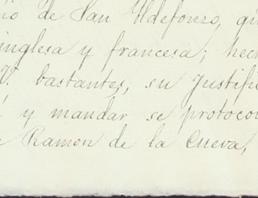 io de San Ildefonso, qu
inglesa y francesa; hech
V. bastantes, su justifi
y mandar se protocol
Ramon de la Cueva,